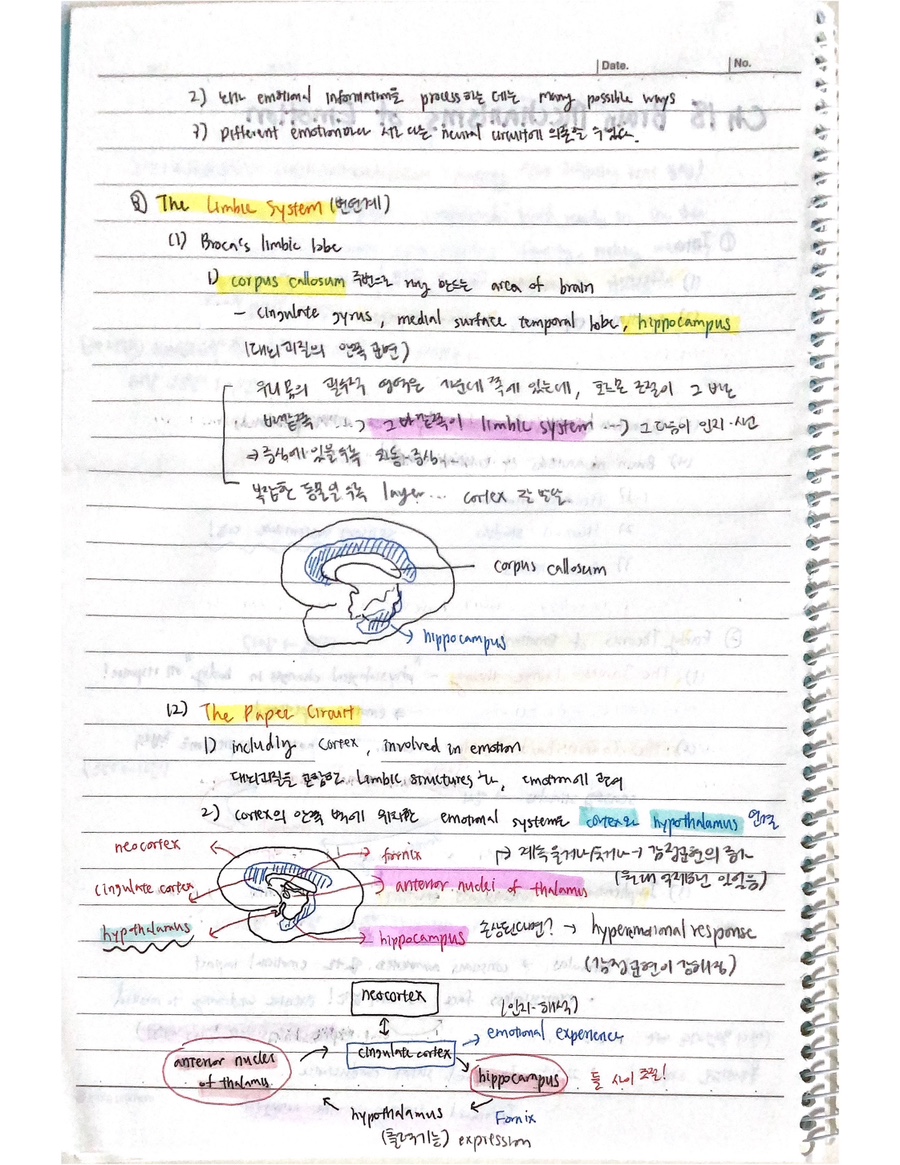 Date.
No.
2) 뇌가 emotional information을 process하는 데는 many possible ways
3) Different emotion마다 서로 다른 neural circuit에 의존할 수 있다.
③ The Limbic System (변연계)
(1) Broca's limbic lobe
1) corpus callosum 주변으로 ring 만드는 area of brain
- cingulate gyrus, medial surface temporal lobe, hippocampus
(대뇌피질의 안쪽 표면)
우리 몸의 필수적 영역은 가운데 쪽에 있는데, 호르몬 조절이 그 바로
바깥쪽 → 그 바깥쪽이 limbic system → 그 다음이 인지·사고
→ 중심에 있을수록
복잡한 동물일수록 layer... cortex 잘 발달
corpus callosum
hippocampus
(2) The Papez Circuit
1) including cortex, involved in emotion
대뇌피질을 포함한 limbic structures가, emotion에 관여
2) cortex의 안쪽 벽에 위치한 emotional system은 cortex와 hypothalamus 연결
neocortex
fornix
→ 계속 웃거나/울거나 → 감정표현의 증가
cingulate cortex
anterior nuclei of thalamus
hypothalamus
hippocampus 손상된다면? → hyperemotional response
(감정표현이 강해짐)
neocortex
(인지·해석)
cingulate cortex
→ emotional experience
anterior nuclei of thalamus
hippocampus
둘 사이 조절!
hypothalamus
Fornix
(출력기능) expression